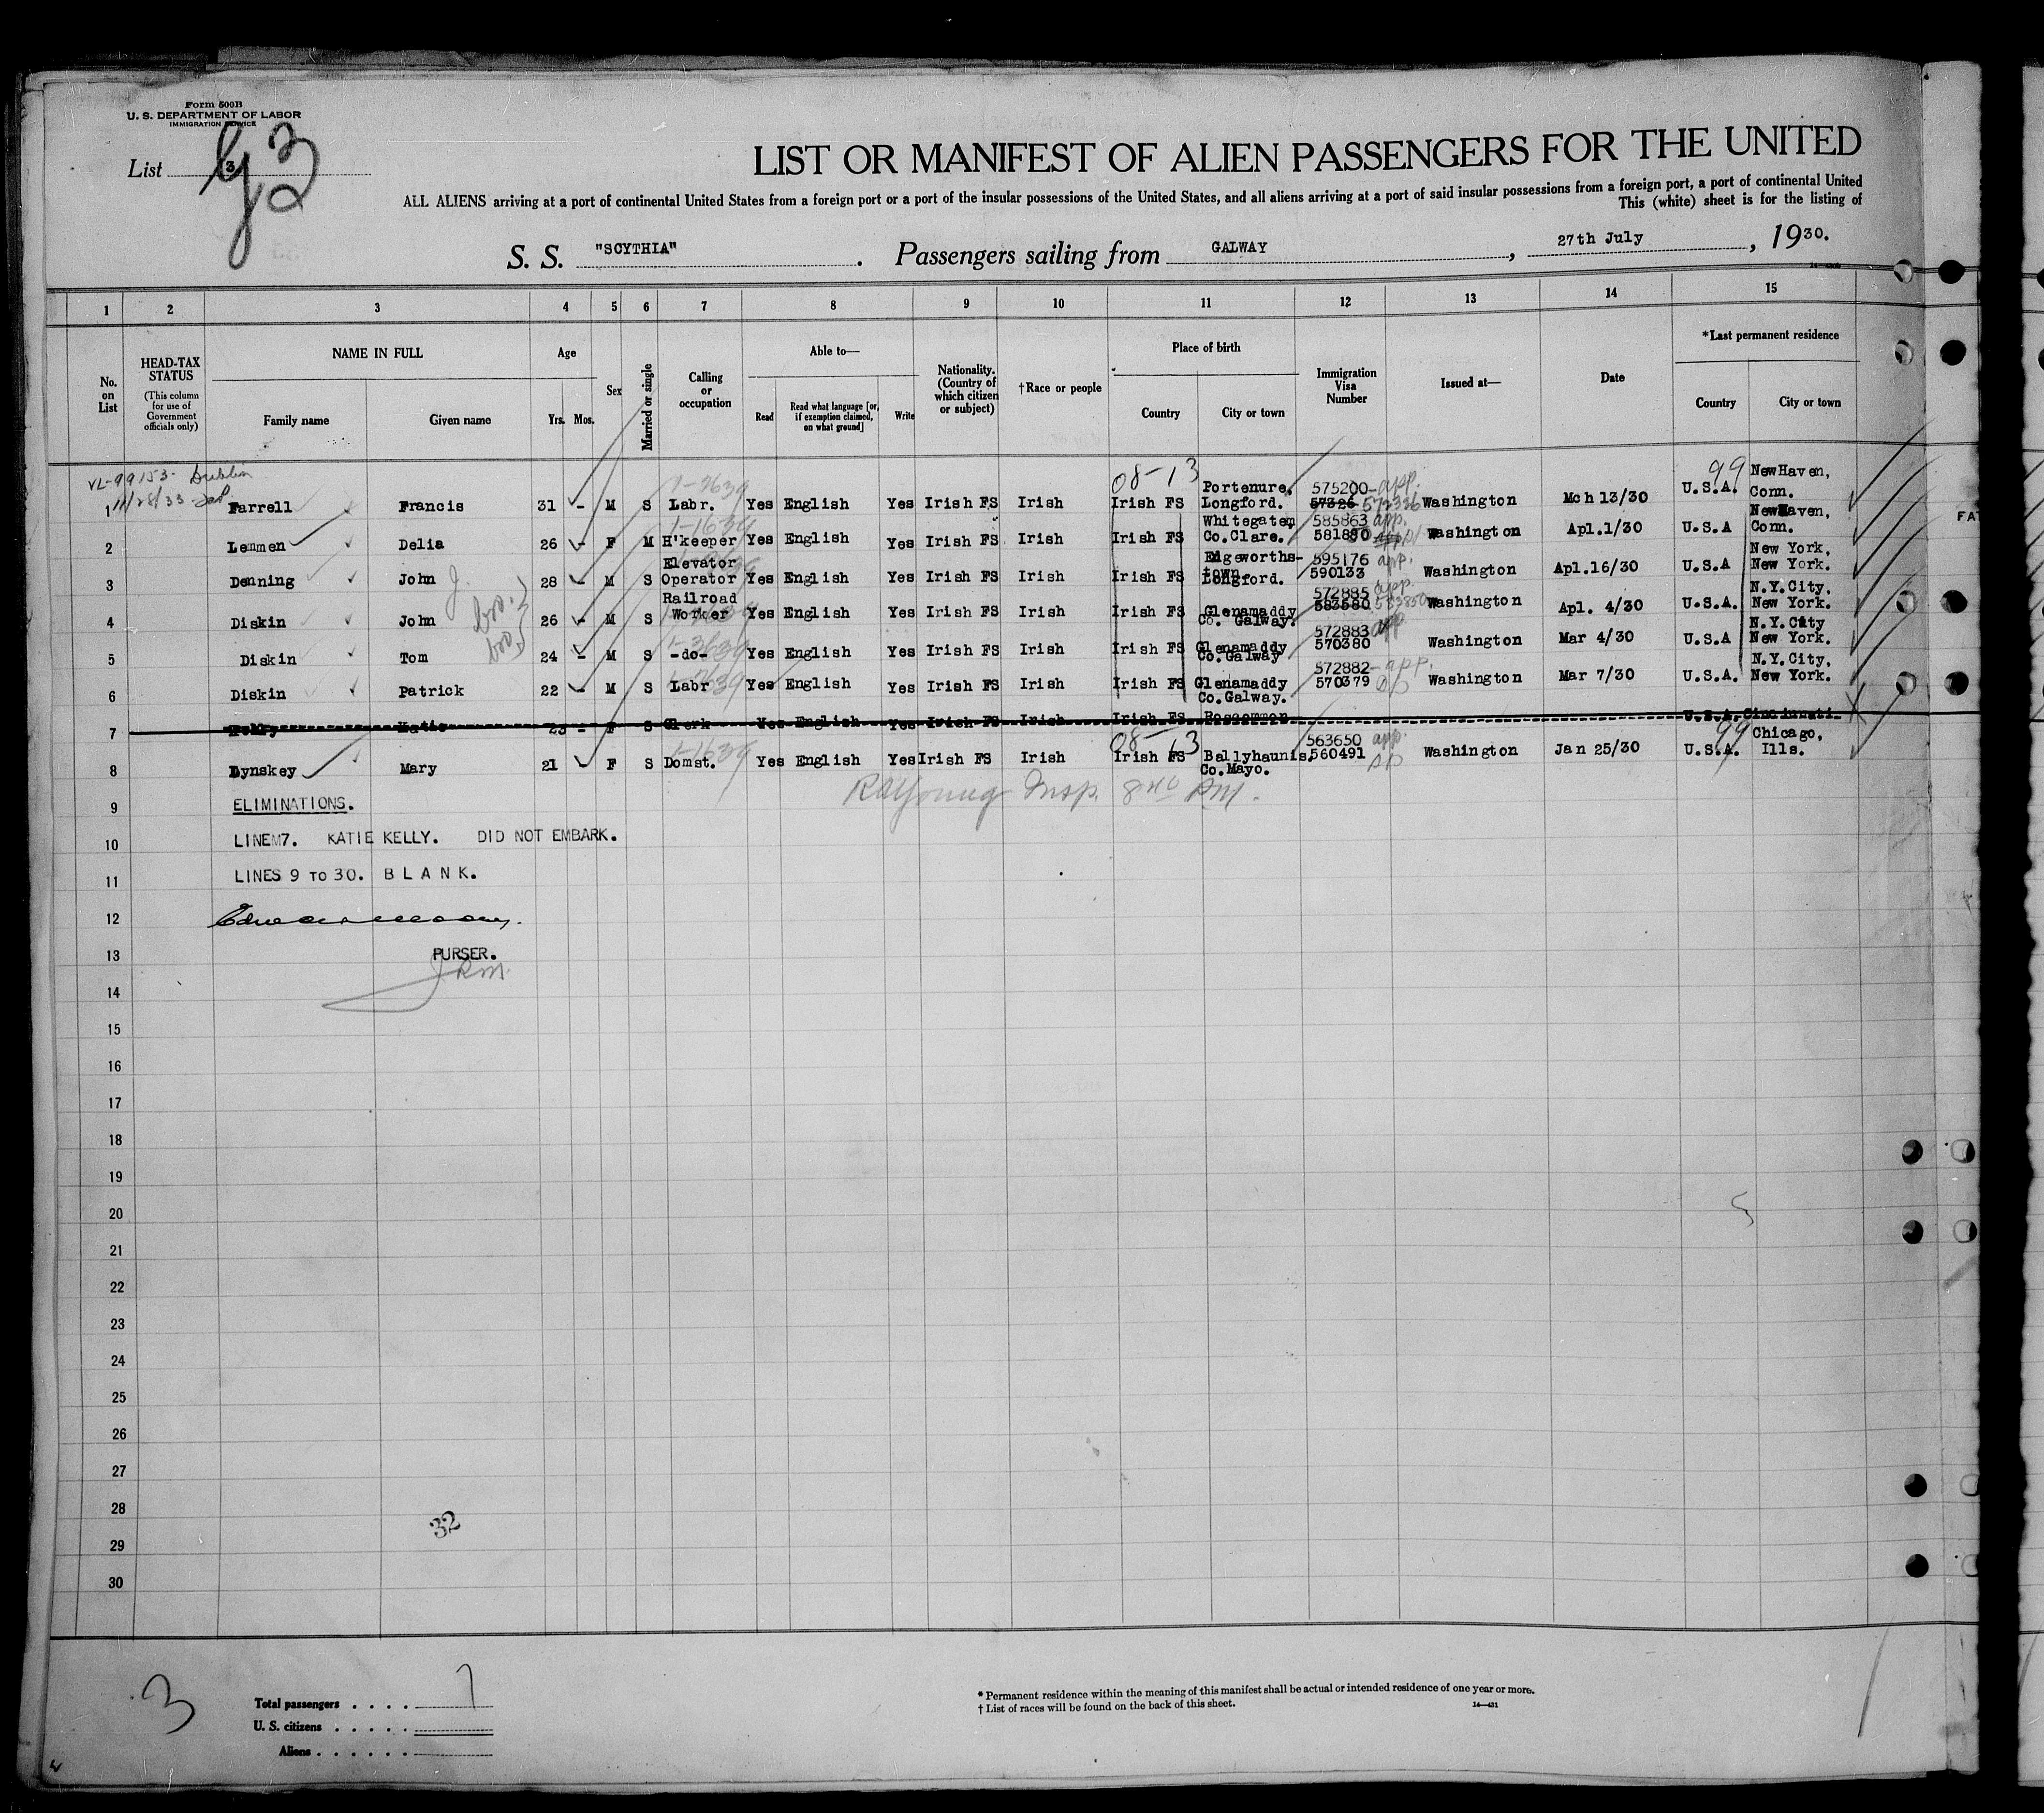 Form 500B
U. S. DEPARTMENT OF LABOR
IMMIGRATION SERVICE
List 3
G3
LIST OR MANIFEST OF ALIEN PASSENGERS FOR THE UNITED
ALL ALIENS arriving at a port of continental United States from a foreign port or a port of the insular possessions of the United States, and all aliens arriving at a port of said insular possessions from a foreign port, a port of continental United
This (white) sheet is for the listing of
S. S. "SCYTHIA" . Passengers sailing from GALWAY , 27th July , 1930.
1 2 3 4 5 6 7 8 9 10 11 12 13 14 15
No. on List
HEAD-TAX STATUS
(This column for use of Government officials only)
NAME IN FULL
Family name Given name
Age
Yrs. Mos.
Sex
Married or single
Calling or occupation
Able to—
Read
Read what language [or, if exemption claimed, on what ground]
Write
Nationality. (Country of which citizen or subject)
†Race or people
Place of birth
Country City or town
Immigration Visa Number
Issued at—
Date
*Last permanent residence
Country City or town
VL-99153- Dublin
11/28/33
08-13
99
1 Farrell Francis 31 - M S Labr. Yes English Yes Irish FS Irish Irish FS Portenure, Longford. 575200-app. 57326 572326 Washington Mch 13/30 U.S.A. NewHaven, Conn.
2 Lemmen Delia 26 - F M H'keeper Yes English Yes Irish FS Irish Irish FS Whitegaten Co.Clare. 585863 app. 581880 Washington Apl.1/30 U.S.A NewHaven, Conn.
3 Denning John J. 28 - M S Elevator Operator Yes English Yes Irish FS Irish Irish FS Edgeworths-town Longford. 595176 app. 590133 Washington Apl.16/30 U.S.A New York, New York.
4 Diskin John bro. 26 - M S Railroad Worker Yes English Yes Irish FS Irish Irish FS Glenamaddy Co. Galway. 572885 app. 583580 583850 Washington Apl. 4/30 U.S.A. N.Y.City, New York.
5 Diskin Tom bro. 24 - M S -do- Yes English Yes Irish FS Irish Irish FS Glenamaddy Co.Galway 572883 app 570380 Washington Mar 4/30 U.S.A N.Y.City New York.
6 Diskin Patrick 22 - M S Labr Yes English Yes Irish FS Irish Irish FS Glenamaddy Co.Galway. 572882-app. 570379 Washington Mar 7/30 U.S.A. N.Y.City, New York.
7 Kelly Katie 23 - F S Clerk Yes English Yes Irish FS Irish Irish FS Roscommon U.S.A. Cincinnati
08-13
99
8 Dynskey Mary 21 - F S Domst. Yes English Yes Irish FS Irish Irish FS Ballyhaunis, Co.Mayo. 563650 app. 560491 Washington Jan 25/30 U.S.A. Chicago, Ills.
Young Insp.
9 ELIMINATIONS.
10 LINEM7. KATIE KELLY. DID NOT EMBARK.
11 LINES 9 TO 30. B L A N K.
12
13 PURSER.
14
15
16
17
18
19
20
21
22
23
24
25
26
27
28
29
30
32
3
Total passengers . . . . 7
U. S. citizens . . . . .
Aliens . . . . . .
* Permanent residence within the meaning of this manifest shall be actual or intended residence of one year or more.
† List of races will be found on the back of this sheet.
14—421
FA